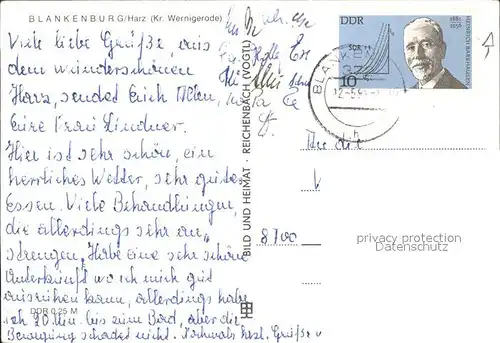 BLANKENBURG/Harz (Kr. Wernigerode)
Viele liebe Grüße aus
dem wunderschönen
Harz, sendet Euch Allen,
Eure Frau Lindner.
Hier ist sehr schön, ein
herrliches Wetter, sehr gutes
Essen. Viele Behandlungen,
die allerdings sehr an„
strengen. Habe eine sehr schöne
Unterkunft wo ich mich gut
ausruhen kann, allerdings habe
ich 20 Min. bis zum Bad, aber die
Bewegung schadet nicht. Nochmals herzl. Grüße v
DDR 0,25 M
BILD UND HEIMAT · REICHENBACH (VOGTL)
DDR
10
1881
1956
HEINRICH BARKHAUSEN
BLANKEN
An die
8700
privacy protection
Datenschutz